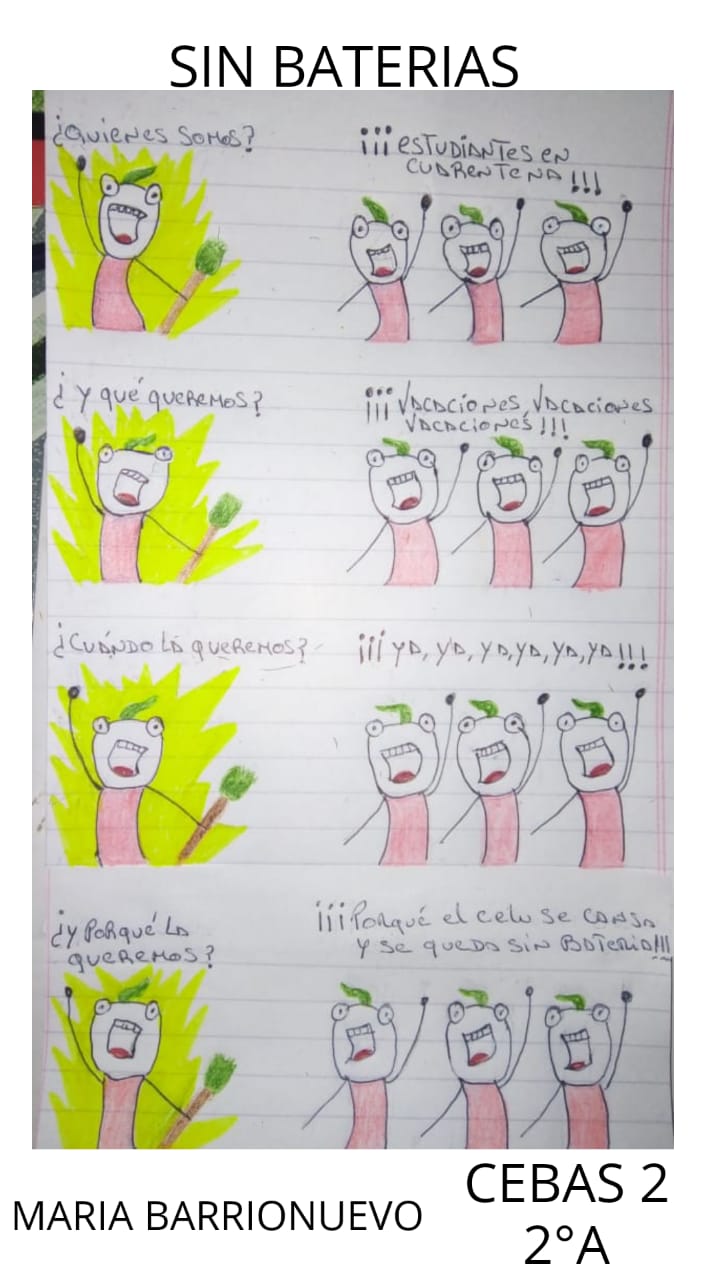 SIN BATERIAS
¿Quienes somos?
¡¡¡estudiantes en
cuarentena!!!
¿Y qué queremos?
¡¡¡Vacaciones, Vacaciones
Vacaciones!!!
¿Cuándo la queremos?
¡¡¡ya, ya, ya, ya, ya, ya!!!
¿y Porqué la
queremos?
¡¡¡Porqué el celu se cansa
y se queda sin bateria!!!
MARIA BARRIONUEVO
CEBAS 2
2°A